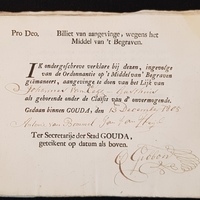 Pro Deo. Billet van aangevinge, wegens het
Middel van 't Begraven.
IK ondergeschreve verklare bij dezen, ingevolge
van de Ordonnantie op 't Middel van Begraven
geëmaneert, aangevinge te doen van het Lijk van
Johannes
als gehorende onder de Classis van d'onvermogende.
Gedaan binnen GOUDA, den 15 December 1805
van
Ter Secretarije der Stad GOUDA,
getekent op datum als boven.